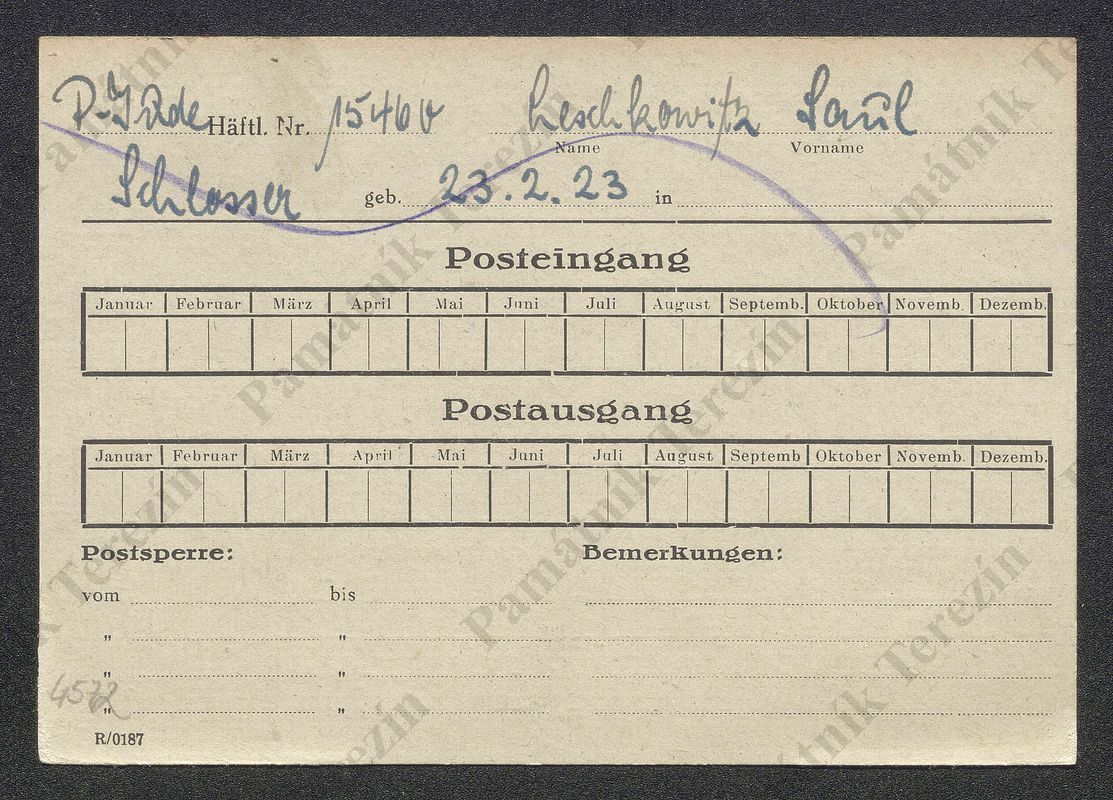 P.-Jude Häftl. Nr. 15460 Leschkowitz Saul
Name Vorname
Schlosser geb. 23.2.23 in
Posteingang
Januar Februar März April Mai Juni Juli August Septemb. Oktober Novemb. Dezemb.
Postausgang
Januar Februar März April Mai Juni Juli August Septemb Oktober Novemb. Dezemb.
Postsperre: Bemerkungen:
vom bis
" "
" "
4572
" "
R/0187
Památník Terezín